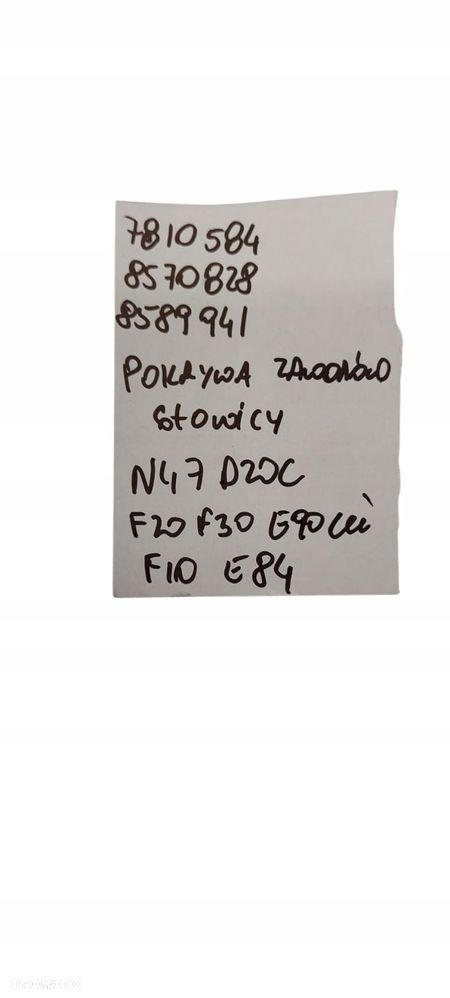 7810584
8570828
8589941
POKRYWA ZAWORÓW
GŁOWICY
N47 D20C
F20 F30 E90 LCI
F10 E84